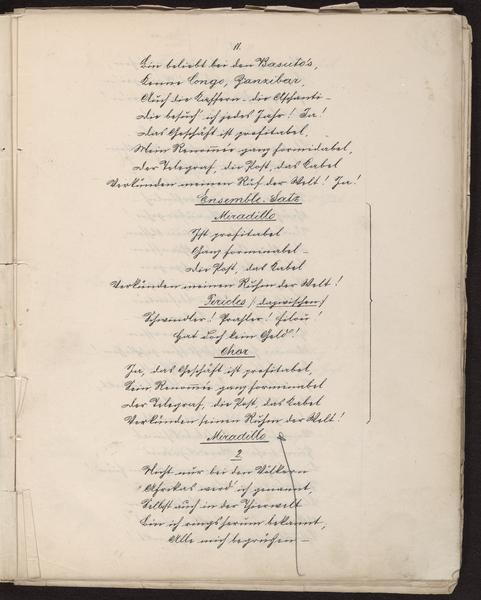 11.
Bin beliebt bei den Basuto's,
Kenne Congo, Zanzibar,
Auch die Kaffern - die Aschanti -
Die besuch' ich jedes Jahr! Ja!
Das Geschäft ist profitabel,
Mein Renomée ganz formidabel,
Der Telegraf, die Post, das Kabel
Verkünden meinen Ruf der Welt! Ja!
Ensemble-Satz
Miradillo
Ist profitabel
Ganz forminabel -
Die Post, das Kabel
Verkünden meinen Ruhm der Welt!
Pericles /: dazwischen :/
Schwindler! Prahler! Filou!
Hat doch kein Geld!
Chor
Ja, das Geschäft ist profitabel,
Sein Renomée ganz forminabel
Der Telegraf, die Post, das Kabel
Verkünden seinen Ruhm der Welt!
Miradillo
2
Nicht nur bei den Völkern
Afrikas werd' ich genannt,
Selbst auch in der Thierwelt
Bin ich ringsherum bekannt,
Alle mich begrüßen -